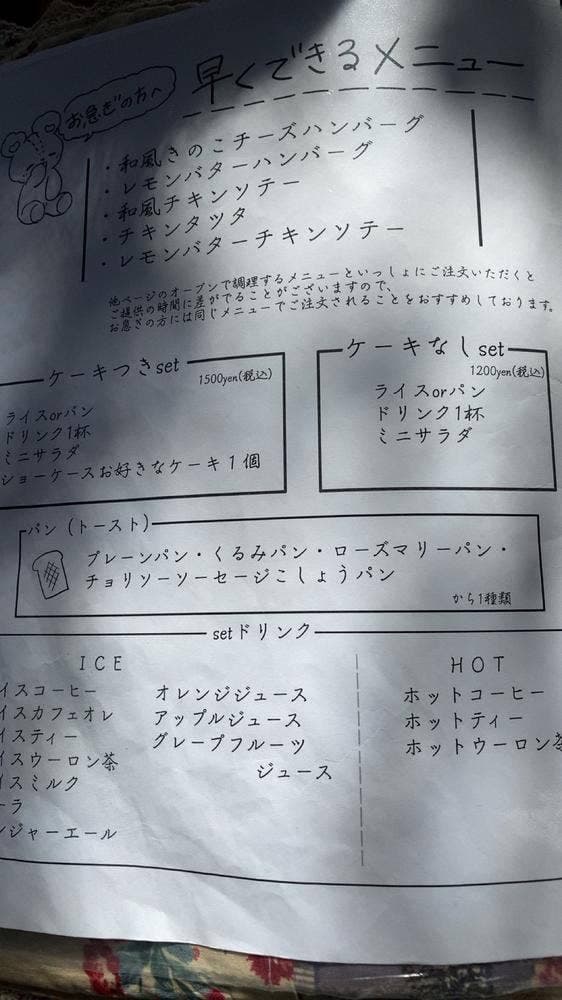 お急ぎの方へ
早くできるメニュー
・和風きのこチーズハンバーグ
・レモンバターハンバーグ
・和風チキンソテー
・チキンタツタ
・レモンバターチキンソテー
他ページのオーブンで調理するメニューといっしょにご注文いただくと
ご提供の時間に差がでることがございますので、
お急ぎの方には同じメニューでご注文されることをおすすめしております。
ケーキつきset
1500yen(税込)
ライスorパン
ドリンク1杯
ミニサラダ
ショーケースお好きなケーキ1個
ケーキなしset
1200yen(税込)
ライスorパン
ドリンク1杯
ミニサラダ
パン(トースト)
プレーンパン・くるみパン・ローズマリーパン・
チョリソーソーセージこしょうパン
から1種類
setドリンク
ICE
イスコーヒー
イスカフェオレ
イスティー
イスウーロン茶
イスミルク
ーラ
ンジャーエール
オレンジジュース
アップルジュース
グレープフルーツ
ジュース
HOT
ホットコーヒー
ホットティー
ホットウーロン茶